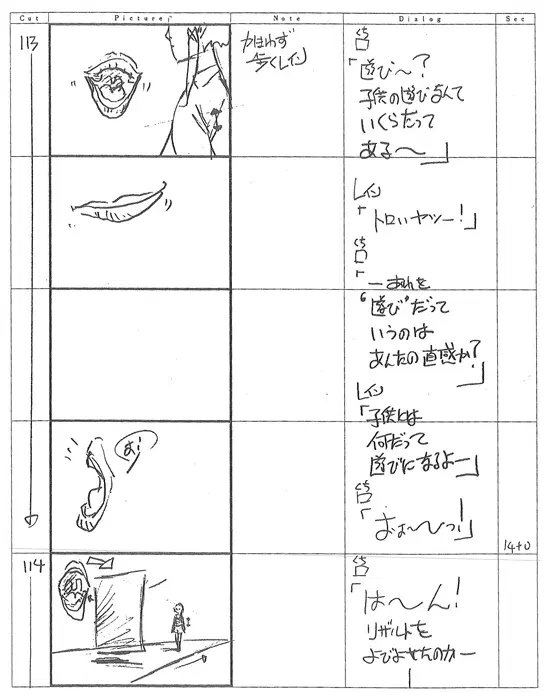 Cut Picture Note Dialog Sec
113
かまわず
歩くレイン
口
「遊び〜?
子供の遊びなんて
いくらだって
ある〜」
レイン
「トロいヤツー!」
口
「ーあれを
“遊び”だって
いうのは
あんたの直感か?」
レイン
「子供とは
何だって
遊びになるよー」
あ!
口
「おぉ〜いっ!」
14+0
114
口
「は〜ん!
リザルトを
よびよせたのかー